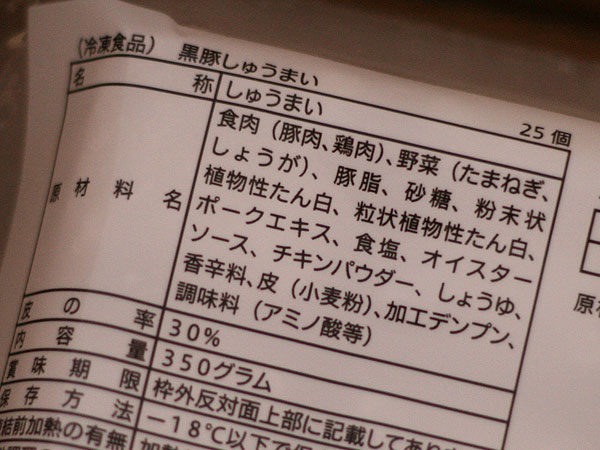 (冷凍食品) 黒豚しゅうまい 25個
名称 しゅうまい
原材料名 食肉(豚肉、鶏肉)、野菜(たまねぎ、
しょうが)、豚脂、砂糖、粉末状
植物性たん白、粒状植物性たん白、
ポークエキス、食塩、オイスター
ソース、チキンパウダー、しょうゆ、
香辛料、皮(小麦粉)、加工デンプン、
調味料(アミノ酸等)
皮の率 30%
内容量 350グラム
賞味期限 枠外反対面上部に記載してあり
保存方法 −18℃以下で
結前加熱の有無 加熱
原材